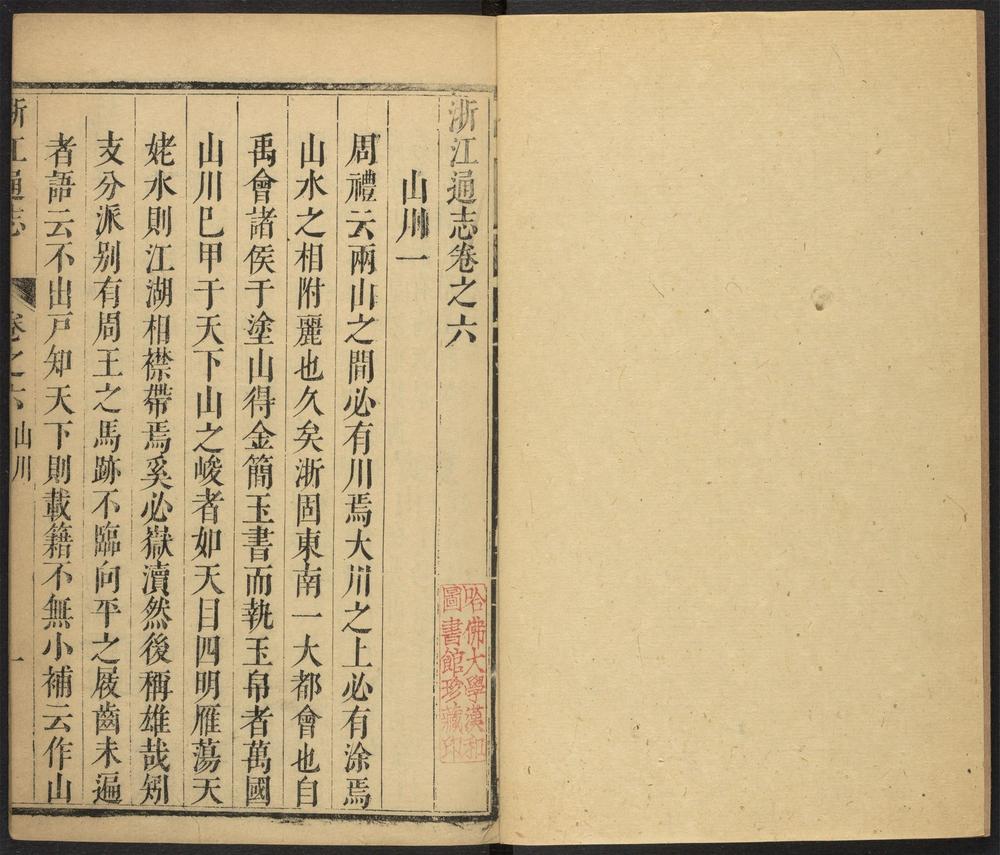 浙江通志卷之六
山川一
周禮云兩山之間必有川焉大川之上必有涂焉
山水之相附麗也久矣浙固東南一大都會也自
禹會諸侯于塗山得金簡玉書而執玉帛者萬國
山川已甲于天下山之峻者如天目四明雁蕩天
姥水則江湖相襟帶焉奚必嶽瀆然後稱雄哉矧
支分派别有周王之馬跡不臨向平之屐齒未遍
者語云不出戸知天下則載籍不無小補云作山
浙江通志 卷之六 山川 一
哈佛大學漢和
圖書館珍藏印